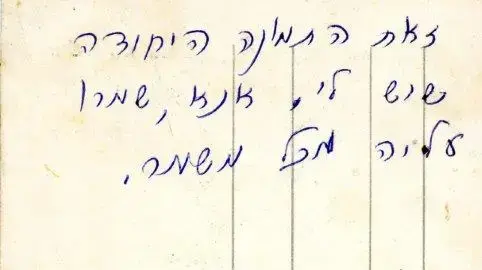 זאת התמונה היחודה
שיש לי. אנא, שמרו
עליה מכל משמר.